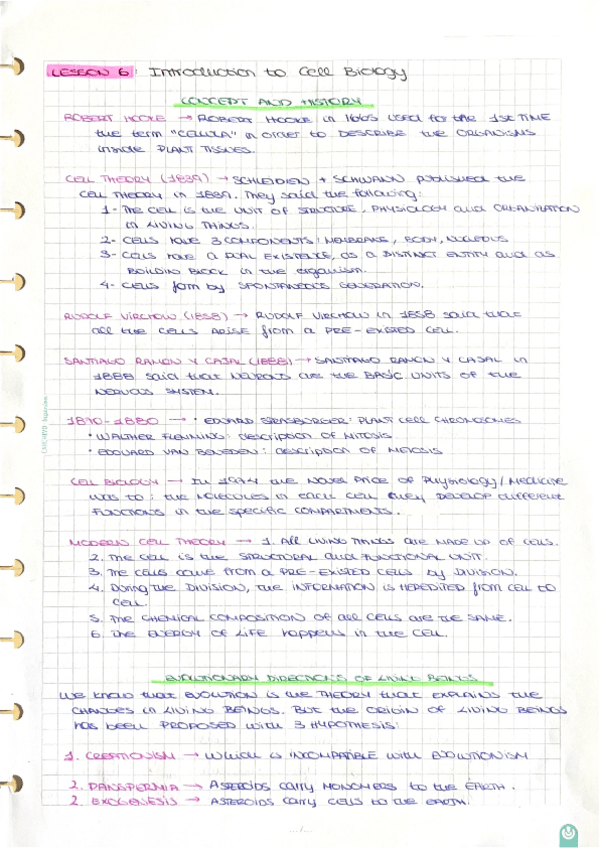 LESSON 6: Introduction to Cell Biology
CONCEPT AND HISTORY
ROBERT HOOKE → ROBERT HOOKE in 1665 used for the 1st TIME
the term "CELLULA" in order to DESCRIBE the ORGANISMS
inside PLANT TISSUES.
CELL THEORY (1839) → SCHLEIDEN + SCHWANN published the
CELL THEORY in 1839. They said the following:
1- The CELL is the UNIT OF STRUCTURE, PHYSIOLOGY and ORGANISATION
in LIVING THINGS.
2- CELLS HAVE 3 COMPONENTS: MEMBRANE, BODY, NUCLEOUS
3- CELLS HAVE a DUAL EXISTENCE, as a DISTINCT ENTITY and as
BUILDING BLOCK in the organism.
4- CELLS form by SPONTANEOUS GENERATION.
RUDOLF VIRCHOW (1858) → RUDOLF VIRCHOW in 1858 said that
all the CELLS ARISE from a PRE-EXISTED CELL.
SANTIAGO RAMON Y CAJAL (1888) → SANTIAGO RAMON Y CAJAL in
1888 said that NEURONS are the BASIC UNITS OF the
NERVOUS SYSTEM.
1870-1880 → • EDUARD STRASBURGER: PLANT CELL CHROMOSOMES
• WALTHER FLEMMING: description of MITOSIS
• EDOUARD VAN BENEDEN: description of MEIOSIS
CELL BIOLOGY → In 1974 the Nobel Price of Physiology/Medicine
was to: the MOLECULES in each CELL they DEVELOP different
FUNCTIONS in the specific COMPARTMENTS.
MODERN CELL THEORY → 1. All LIVING THINGS are MADE UP of CELLS.
2. The CELL is the STRUCTURAL and FUNCTIONAL UNIT.
3. The CELLS come from a PRE-EXISTED CELLS by DIVISION.
4. During the DIVISION, the INFORMATION is HEREDITED from CELL to
CELL.
5. The CHEMICAL COMPOSITION of all CELLS are the SAME.
6. The ENERGY OF LIFE happens in the CELL.
EVOLUTIONARY DIRECTIONS OF LIVING BEINGS
WE KNOW that EVOLUTION is the THEORY that EXPLAINS the
CHANGES in LIVING BEINGS. But the ORIGIN OF LIVING BEINGS
has been PROPOSED with 3 HYPOTHESIS:
1. CREATIONISM → WHICH is INCOMPATIBLE with EVOLUTIONISM
2. PANSPERMIA → ASTEROIDS carry MONOMERS to the EARTH.
2. EXOGENESIS → ASTEROIDS carry CELLS to the EARTH.
.../...